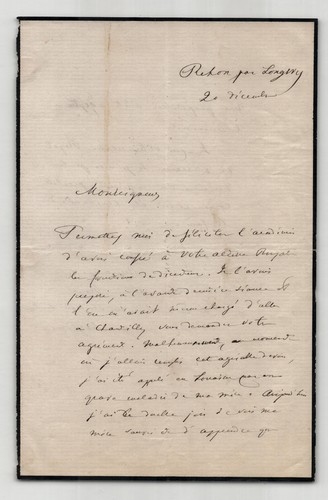 Rehon par Longwy
20 décembre
Monseigneur
Permettez moi de féliciter l'académie
d'avoir confié à Votre Altesse Royale
les fonctions de directeur. Je l'avais
proposé, à l'avant dernière séance et
l'on m'avait chargé d'aller
à Chantilly vous demander votre
agrément. Malheureusement, au moment
où j'allais remplir cet agréable devoir,
j'ai été appelé en Lorraine par une
grave maladie de ma mère. Aujourd'hui
j'ai la double joie de voir ma
mère sauvée et d'apprendre que